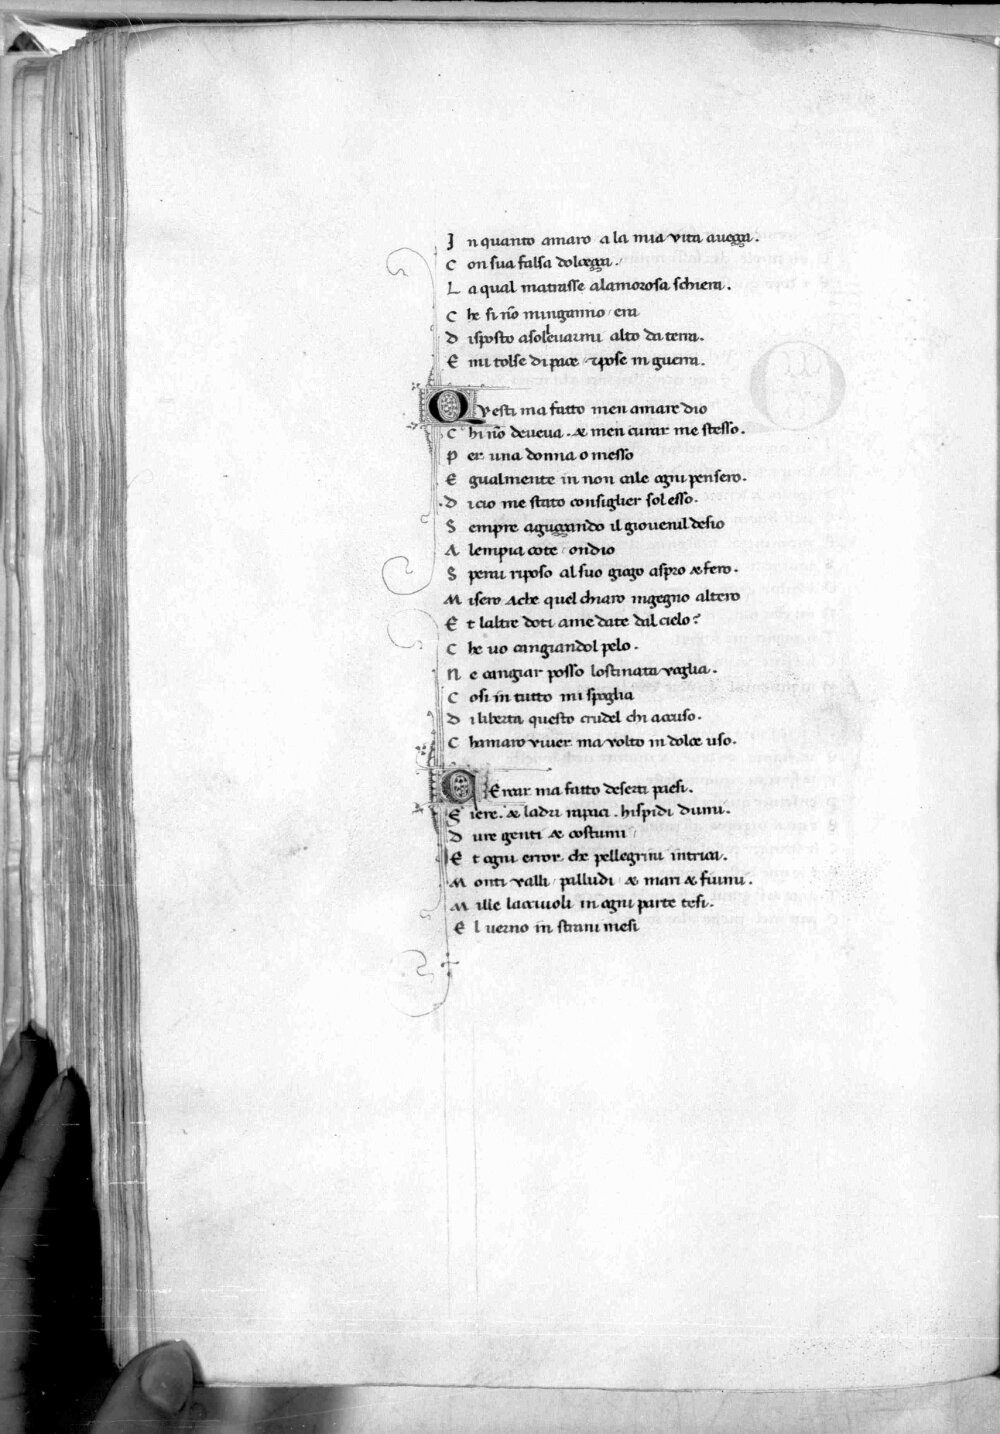 In quanto amaro a la mia vita auegga.
Con sua falsa dolcegga.
La qual matrasse alamorosa schiera.
Che si nõ minganno era
Disposto asolleuarmi alto da terra.
E mi tolse di pace ⁊pose in guerra.
Qvesti ma fatto men amare dio
Chi nõ deueua. & men curar me stesso.
Per una donna o messo
Egualmente in non cale ogni pensero.
Dicio me stato consiglier sol esso.
Sempre aguggando il giouenil desio
Alempia cote ondio
Sperai riposo al suo giogo aspro & fero.
Misero Ache quel chiaro ingegno altero
Et laltre doti ame date dal cielo?
Che uo cangiandol pelo.
Ne cangiar posso lostinata voglia.
Cosi in tutto mi spoglia
Di liberta questo crudel chi accuso.
Chamaro viuer ma volto in dolce uso.
CErcar ma fatto deserti paesi.
Fiere. & ladri rapaci. hispidi dumi.
Dure genti & costumi
Et ogni error che pellegrini intrica.
Monti valli palludi & mari & fiumi.
Mille lacciuoli in ogni parte tesi.
El uerno in strani mesi